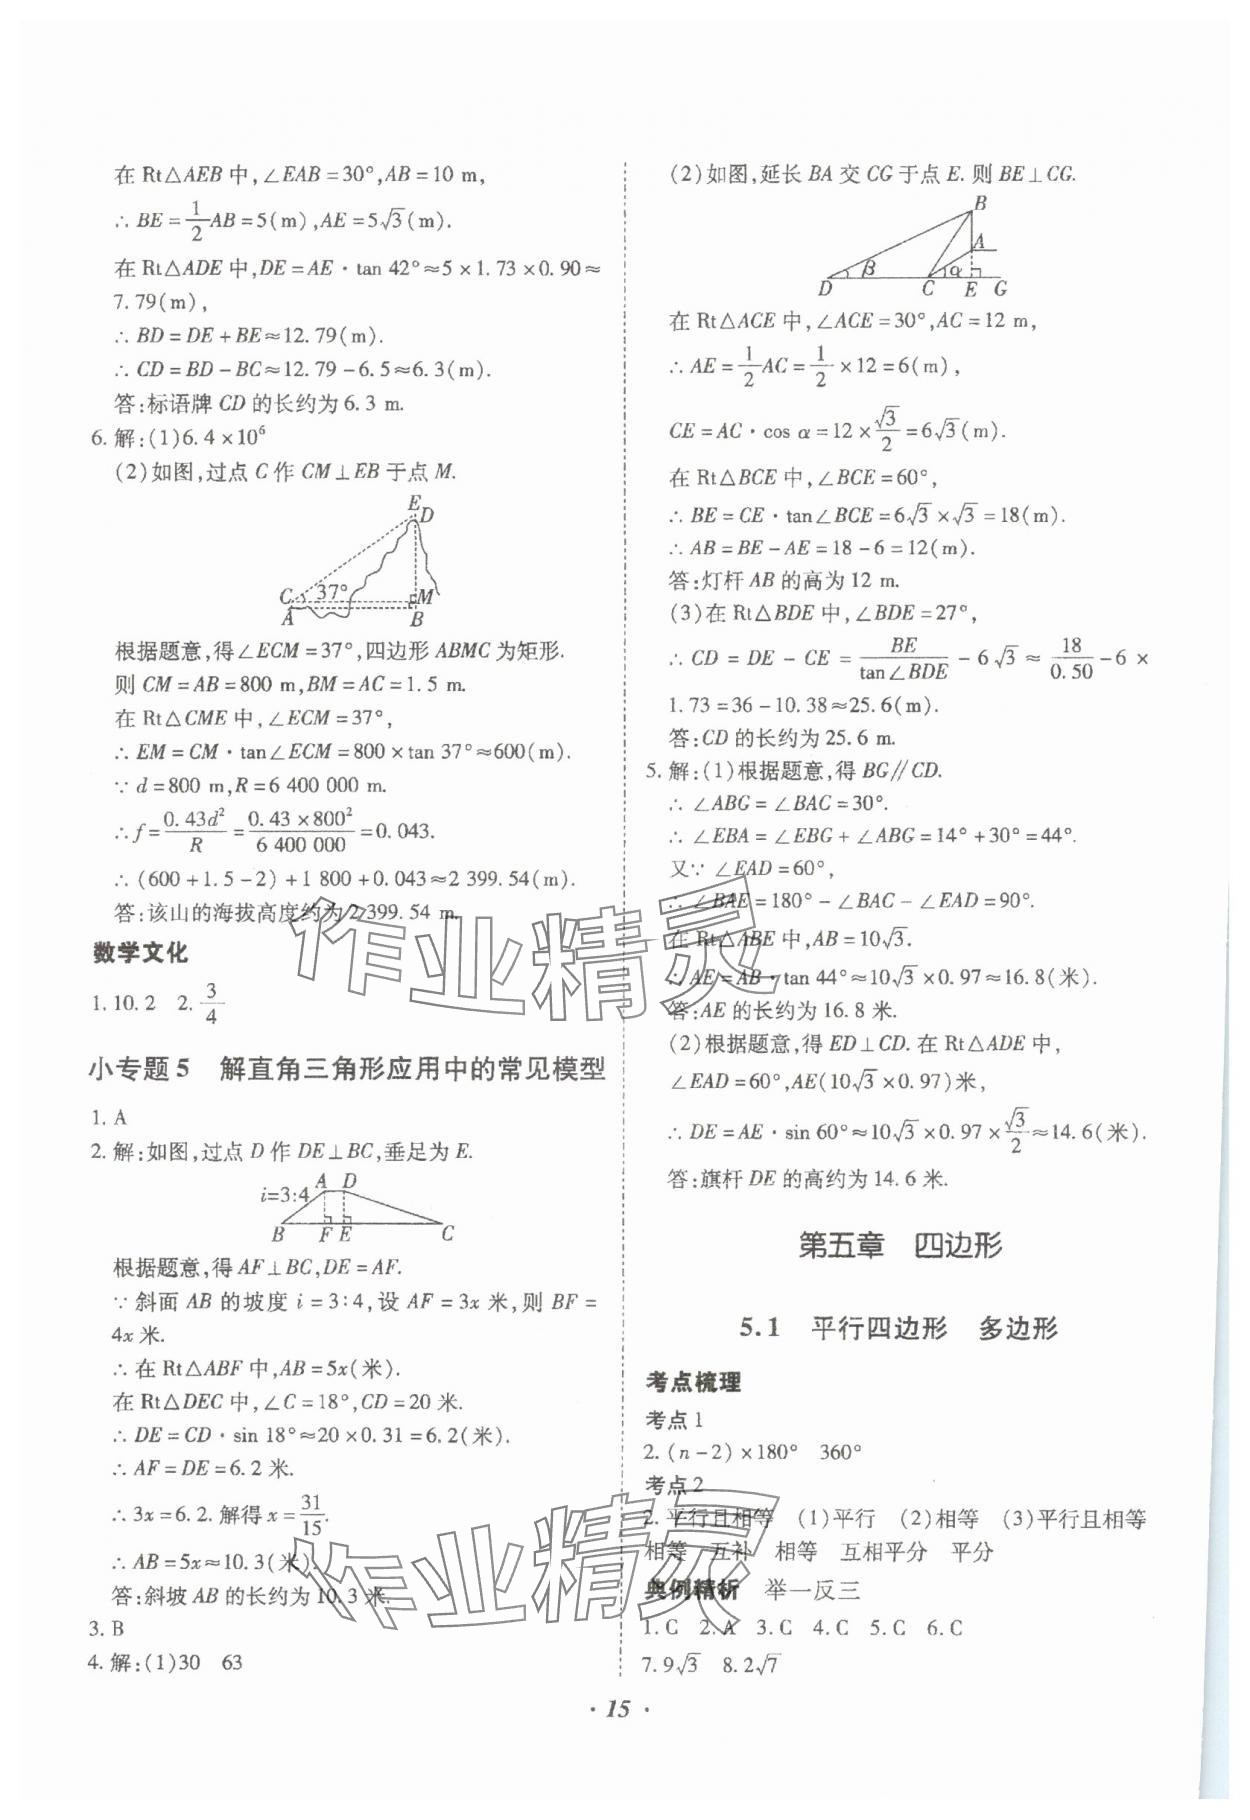 在 Rt△AEB 中,∠EAB=30°,AB=10 m,
∴ BE=1/2AB=5(m),AE=5√3(m).
在 Rt△ADE 中,DE=AE·tan 42°≈5×1.73×0.90≈
7.79(m),
∴ BD=DE+BE≈12.79(m).
∴ CD=BD-BC≈12.79-6.5≈6.3(m).
答:标语牌 CD 的长约为 6.3 m.
6. 解:(1)6.4×10⁶
(2)如图,过点 C 作 CM⊥EB 于点 M.
E
D
C 37° M
A B
根据题意,得∠ECM=37°,四边形 ABMC 为矩形.
则 CM=AB=800 m,BM=AC=1.5 m.
在 Rt△CME 中,∠ECM=37°,
∴ EM=CM·tan∠ECM=800×tan 37°≈600(m).
∵ d=800 m,R=6 400 000 m.
∴ f=0.43d²/R=0.43×800²/6 400 000=0.043.
∴ (600+1.5-2)+1 800+0.043≈2 399.54(m).
答:该山的海拔高度约为 2 399.54 m.
数学文化
1. 10.2 2. 3/4
小专题 5 解直角三角形应用中的常见模型
1. A
2. 解:如图,过点 D 作 DE⊥BC,垂足为 E.
i=3:4 A D
B F E C
根据题意,得 AF⊥BC,DE=AF.
∵ 斜面 AB 的坡度 i=3:4,设 AF=3x 米,则 BF=
4x 米.
∴ 在 Rt△ABF 中,AB=5x(米).
在 Rt△DEC 中,∠C=18°,CD=20 米.
∴ DE=CD·sin 18°≈20×0.31=6.2(米).
∴ AF=DE=6.2 米.
∴ 3x=6.2. 解得 x=31/15.
∴ AB=5x≈10.3(米).
答:斜坡 AB 的长约为 10.3 米.
3. B
4. 解:(1)30 63
(2)如图,延长 BA 交 CG 于点 E. 则 BE⊥CG.
B
A
β α
D C E G
在 Rt△ACE 中,∠ACE=30°,AC=12 m,
∴ AE=1/2AC=1/2×12=6(m),
CE=AC·cos α=12×√3/2=6√3(m).
在 Rt△BCE 中,∠BCE=60°,
∴ BE=CE·tan∠BCE=6√3×√3=18(m).
∴ AB=BE-AE=18-6=12(m).
答:灯杆 AB 的高为 12 m.
(3)在 Rt△BDE 中,∠BDE=27°,
∴ CD=DE-CE=BE/tan∠BDE-6√3≈18/0.50-6×
1.73=36-10.38≈25.6(m).
答:CD 的长约为 25.6 m.
5. 解:(1)根据题意,得 BG∥CD.
∴ ∠ABG=∠BAC=30°.
∴ ∠EBA=∠EBG+∠ABG=14°+30°=44°.
又∵ ∠EAD=60°,
∴ ∠BAE=180°-∠BAC-∠EAD=90°.
在 Rt△ABE 中,AB=10√3.
∴ AE=AB·tan 44°≈10√3×0.97≈16.8(米).
答:AE 的长约为 16.8 米.
(2)根据题意,得 ED⊥CD. 在 Rt△ADE 中,
∠EAD=60°,AE(10√3×0.97)米,
∴ DE=AE·sin 60°≈10√3×0.97×√3/2≈14.6(米).
答:旗杆 DE 的高约为 14.6 米.
第五章 四边形
5.1 平行四边形 多边形
考点梳理
考点 1
2. (n-2)×180° 360°
考点 2
2. 平行且相等 (1)平行 (2)相等 (3)平行且相等
相等 互补 相等 互相平分 平分
典例精析 举一反三
1. C 2. A 3. C 4. C 5. C 6. C
7. 9√3 8. 2√7
· 15 ·
作业精灵
作业精灵